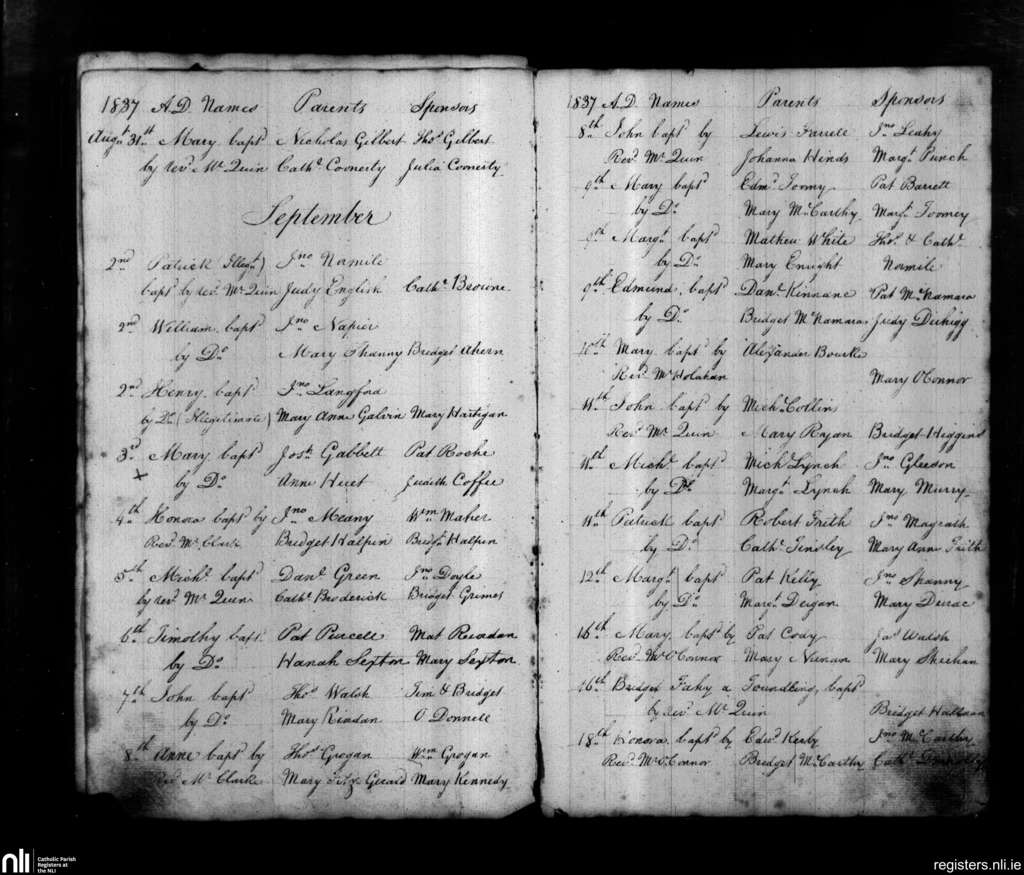 1837 A.D. Names Parents Sponsors
Augt 31st Mary bapt Nicholas Gilbert Thos Gilbert
by revd Mr Quin Cathe Coonerty Julia Coonerty
September
2nd Patrick Illegt) Jno Normile
bapt by revd Mr Quin Judy English Cathe Browne
2nd William bapt Jno Napier
by Do Mary Shanny Bridget Ahern
2nd Henry bapt Jno Langford
by Do (Illegitimate) Mary Anne Galvin Mary Hartigan
3d Mary bapt Josh Gabbett Pat Roche
by Do Anne Huet Judith Coffee
4th Honora bapt by Jno Meany Wm Maher
Revd Mr Clark Bridget Halpin Bridgt Halpin
5th Michl bapt Danl Green Jno Doyle
by revd Mr Quin Cathe Broderick Bridget Grimes
6th Timothy bapt Pat Purcell Mat Reardan
by Do Hanah Sexton Mary Sexton
7th John bapt Thos Walsh Tim & Bridget
by Do Mary Riadan O Donnell
8th Anne bapt by Thos Grogan Wm Grogan
Revd Mr Clarke Mary Fitz Gerard Mary Kennedy
1837 A.D. Names Parents Sponsors
8th John bapt by Lewis Farrell Jno Leahy
Revd Mr Quin Johanna Hinds Margt Punch
9th Mary bapt Edmd Tormy Pat Barrett
by Do Mary McCarthy Margt Toomey
9th Margt bapt Mathew White Thos & Cathe
by Do Mary Enright Normile
9th Edmund bapt Danl Kinnane Pat McNamara
by Do Bridget McNamara Judy Duhigg
10th Mary bapt by Alexander Bourke
Revd Mr Holahan Mary OConnor
11th John bapt by Michl Collins
Revd Mr Quin Mary Ryan Bridget Higgins
11th Michl bapt Mich Lynch Jno Gleeson
by Do Margt Lynch Mary Murry
11th Patrick bapt Robert Frith Jno Magrath
by Do Cathe Tinsley Mary Anne Frith
12th Margt bapt Pat Kelly Jno Shanny
by Do Margt Deigan Mary
16th Mary bapt by Pat Cody Jas Walsh
Revd Mr O'Connor Mary Neenan Mary Sheehan
16th Bridget Fahy a Foundling, bapt
by revd Mr Quin Bridget
18th Honora bapt by Edwd Kerby Jno McCarthy
Revd Mr O'Connor Bridget McCarthy Cathe
nli Catholic Parish
Registers at
the NLI
registers.nli.ie